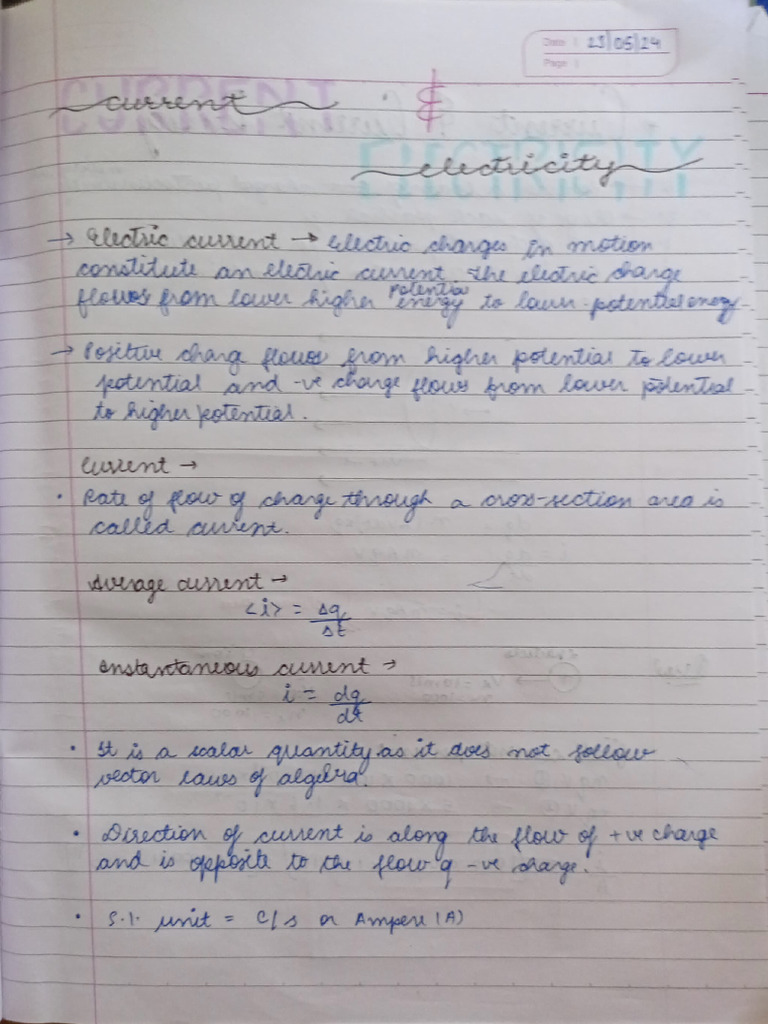 Date : 23/05/24
Page :
CURRENT
current &
ELECTRICITY
electricity
→ Electric current → Electric charges in motion
constitute an electric current. The electric charge
flows from lower higher potential energy to lower potential energy
→ Positive charg flows from higher potential to lower
potential and -ve charge flows from lower potential
to higher potential.
Current →
• Rate of flow of charge through a cross-section area is
called current.
Average current →
<i> = Δq/Δt
Instantaneous current →
i = dq/dt
• It is a scalar quantity as it does not follow
vector laws of algebra.
• Direction of current is along the flow of +ve charge
and is opposite to the flow of -ve charge.
• S.I. unit = C/s or Ampere (A)